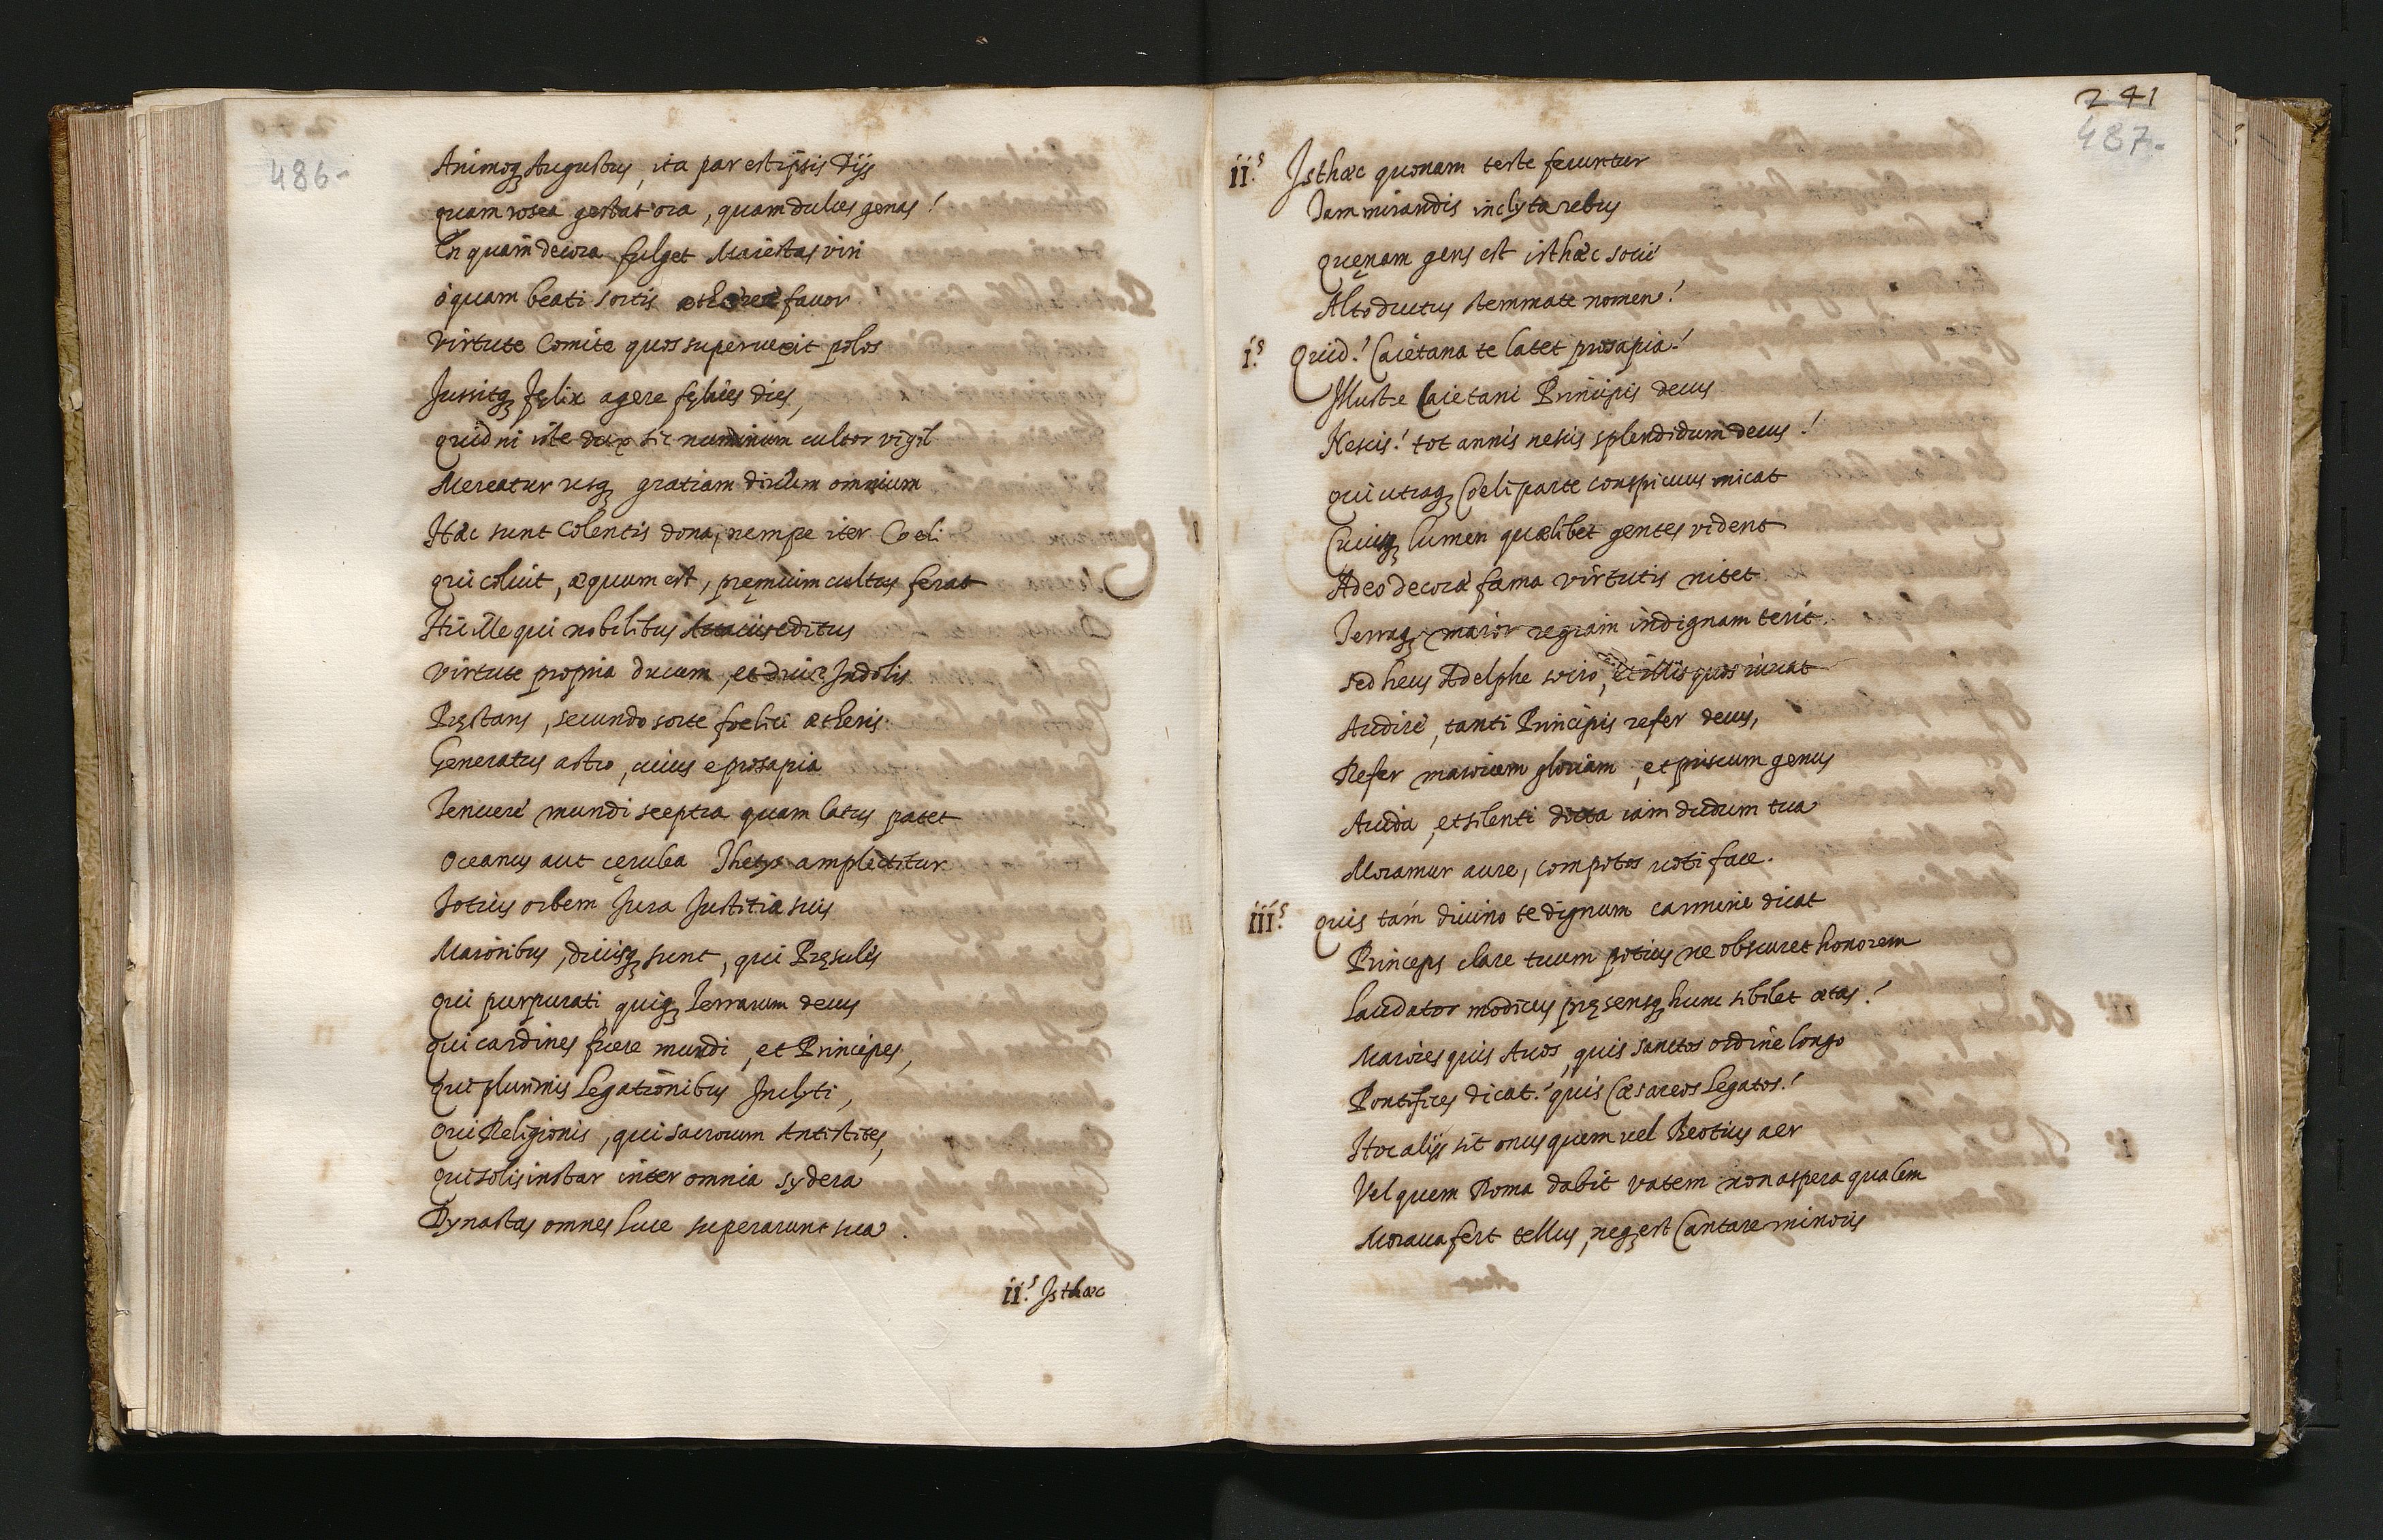 486-
Animoq; Augustus, ita par est ipsis Dijs
quam rosea gestat ora, quam dulces genas!
En quam decora fulget Maiestas viri
ò quam beati sortis æthereæ fauor
Virtute Comite quos superuexit polos
Jussitq; felix agere felices dies,
quid ni iste dux sic numinum cultor vigil
Mereatur usq; gratiam diuûm omnium
Hæc sunt colentis dona, nempe iter Coeli
qui coluit, æquum est, pręmium cultus ferat
Hic ille qui nobilibus Atauis editus
Virtute propria ducum, et Indolis
Pręstans, secundo sorte foelici ætheris
Generatus astro, cuius e prosapia
Tenuere mundi sceptra quam latus patet
Oceanus aut cęrulea Thetys amplectitur
Totius orbem Jura Justitia suis
Maioribus, diuisq; sunt, qui Pręsulis
Qui purpurati, quiq; Terrarum decus
qui cardines fuere mundi, et Principes,
Qui plurimis Legationibus Inclyti,
Qui Religionis, qui sacrorum Antistites,
qui solis instar inter omnia sydera
Dynastas omnes luce superarunt sua.
ii.s Isthæc
241
487-
ii.s Isthæc quonam teste feruntur
Tam mirandis inclyta rebus
Quęnam gens est isthæc socii
Alto ductus stemmate nomen!
i.s Quid! Caietana te latet prosapia!
Illustre Caietani Principis decus
Nescis! tot annis nescis splendidum decus!
qui utraq; Coeli parte conspicuus micat
Cuiusq; lumen quælibet gentes vident
Adeo decora fama virtutis nitet
Terraq; maior regiam indignam terit.
sed heus Adelphe scito, et illis quos iuuat
Audire, tanti Principis refer decus,
Refer maiorum gloriam, et priscum genus
Auida, et silenti dicta iam dudum tua
Moramur aure, compotes uoti face.
iii.s Quis tam diuino te dignum carmine dicat
Princeps clare tuum potius ne obscuret honorem
Laudator modicus pręsensq; hunc sibilet ætas!
Maiores quis Auos, quis sanctos ordine longo
Pontifices dicat! quis Cæsareos Legatos!
Hoc alijs sit onus quem uel Beotius aer
Vel quem Roma dabit vatem non aspera qualem
Moraua fert tellus, neq; est Cantare minoris